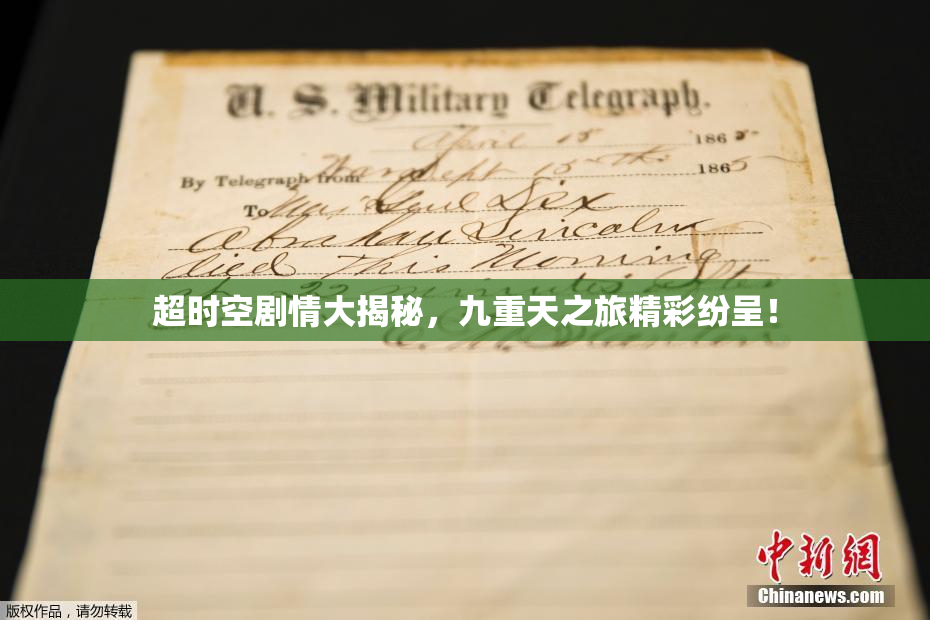 U. S. Military Telegraph.
April 15 1865
By Telegraph from War Dept 15th 1865
To Maj Genl Dix
Abraham Lincoln
died This Morning
22 minutes after
超时空剧情大揭秘，九重天之旅精彩纷呈！
E. M. Stanton
中新网
Chinanews.com
版权作品，请勿转载